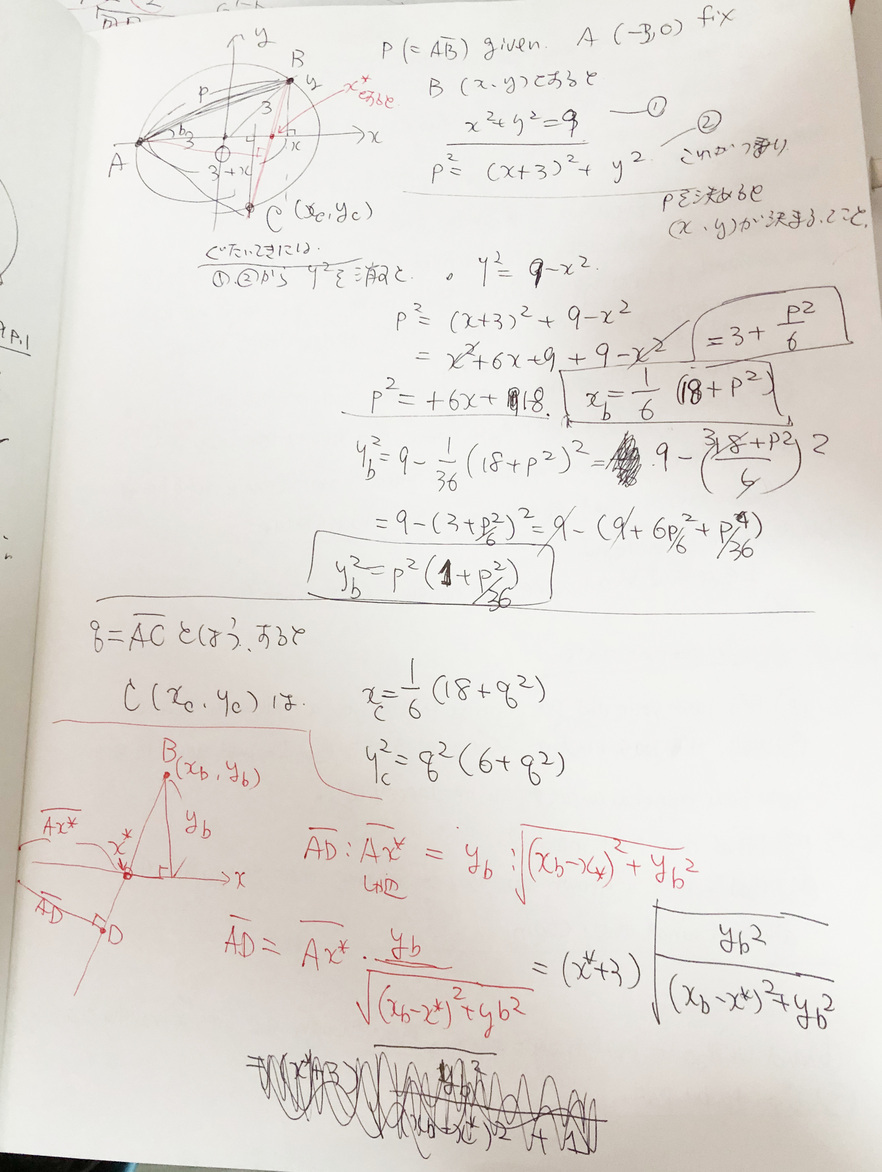 P (= A̅B̅) given. A (-3,0) fix
B (x, y) とおると
x²+y²=9 ―①
P² = (x+3)² + y² ②
これがつまり
Pを決めると
(x, y)が決まるってこと。
y
B
y
P
x*
とおくと
3
3
x
x
A
3+x
C (xc, yc)
ぐたいてきには.
①,②から y²を消すと. y² = 9-x²
P² = (x+3)² + 9-x²
= x²+6x+9 + 9-x²
= 3 + P²/6
P² = +6x+ 18.
xb = 1/6 (18+P²)
yb² = 9 - 1/36 (18+P²)² = 9 - (18+P²/6)²
3
= 9-(3+P²/6)² = 9 - (9+ 6P²/6 + P⁴/36)
yb² = P² (1+P²/36)
q = A̅C̅ とし
C (xc, yc) は. xc = 1/6 (18+q²)
yc² = q² (6+q²)
B (xb, yb)
A̅x̅*̅
x*
yb
x
A̅D̅
D
A̅D̅ : A̅x̅*̅ = yb : √((xb-x*)² + yb²)
A̅D̅ = A̅x̅*̅ · yb/√((xb-x*)²+yb²) = (x*+3) √(yb²/((xb-x*)²+yb²))